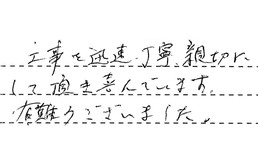 工事を迅速、丁寧、親切に
して頂き喜んでいます。
有難うございました。